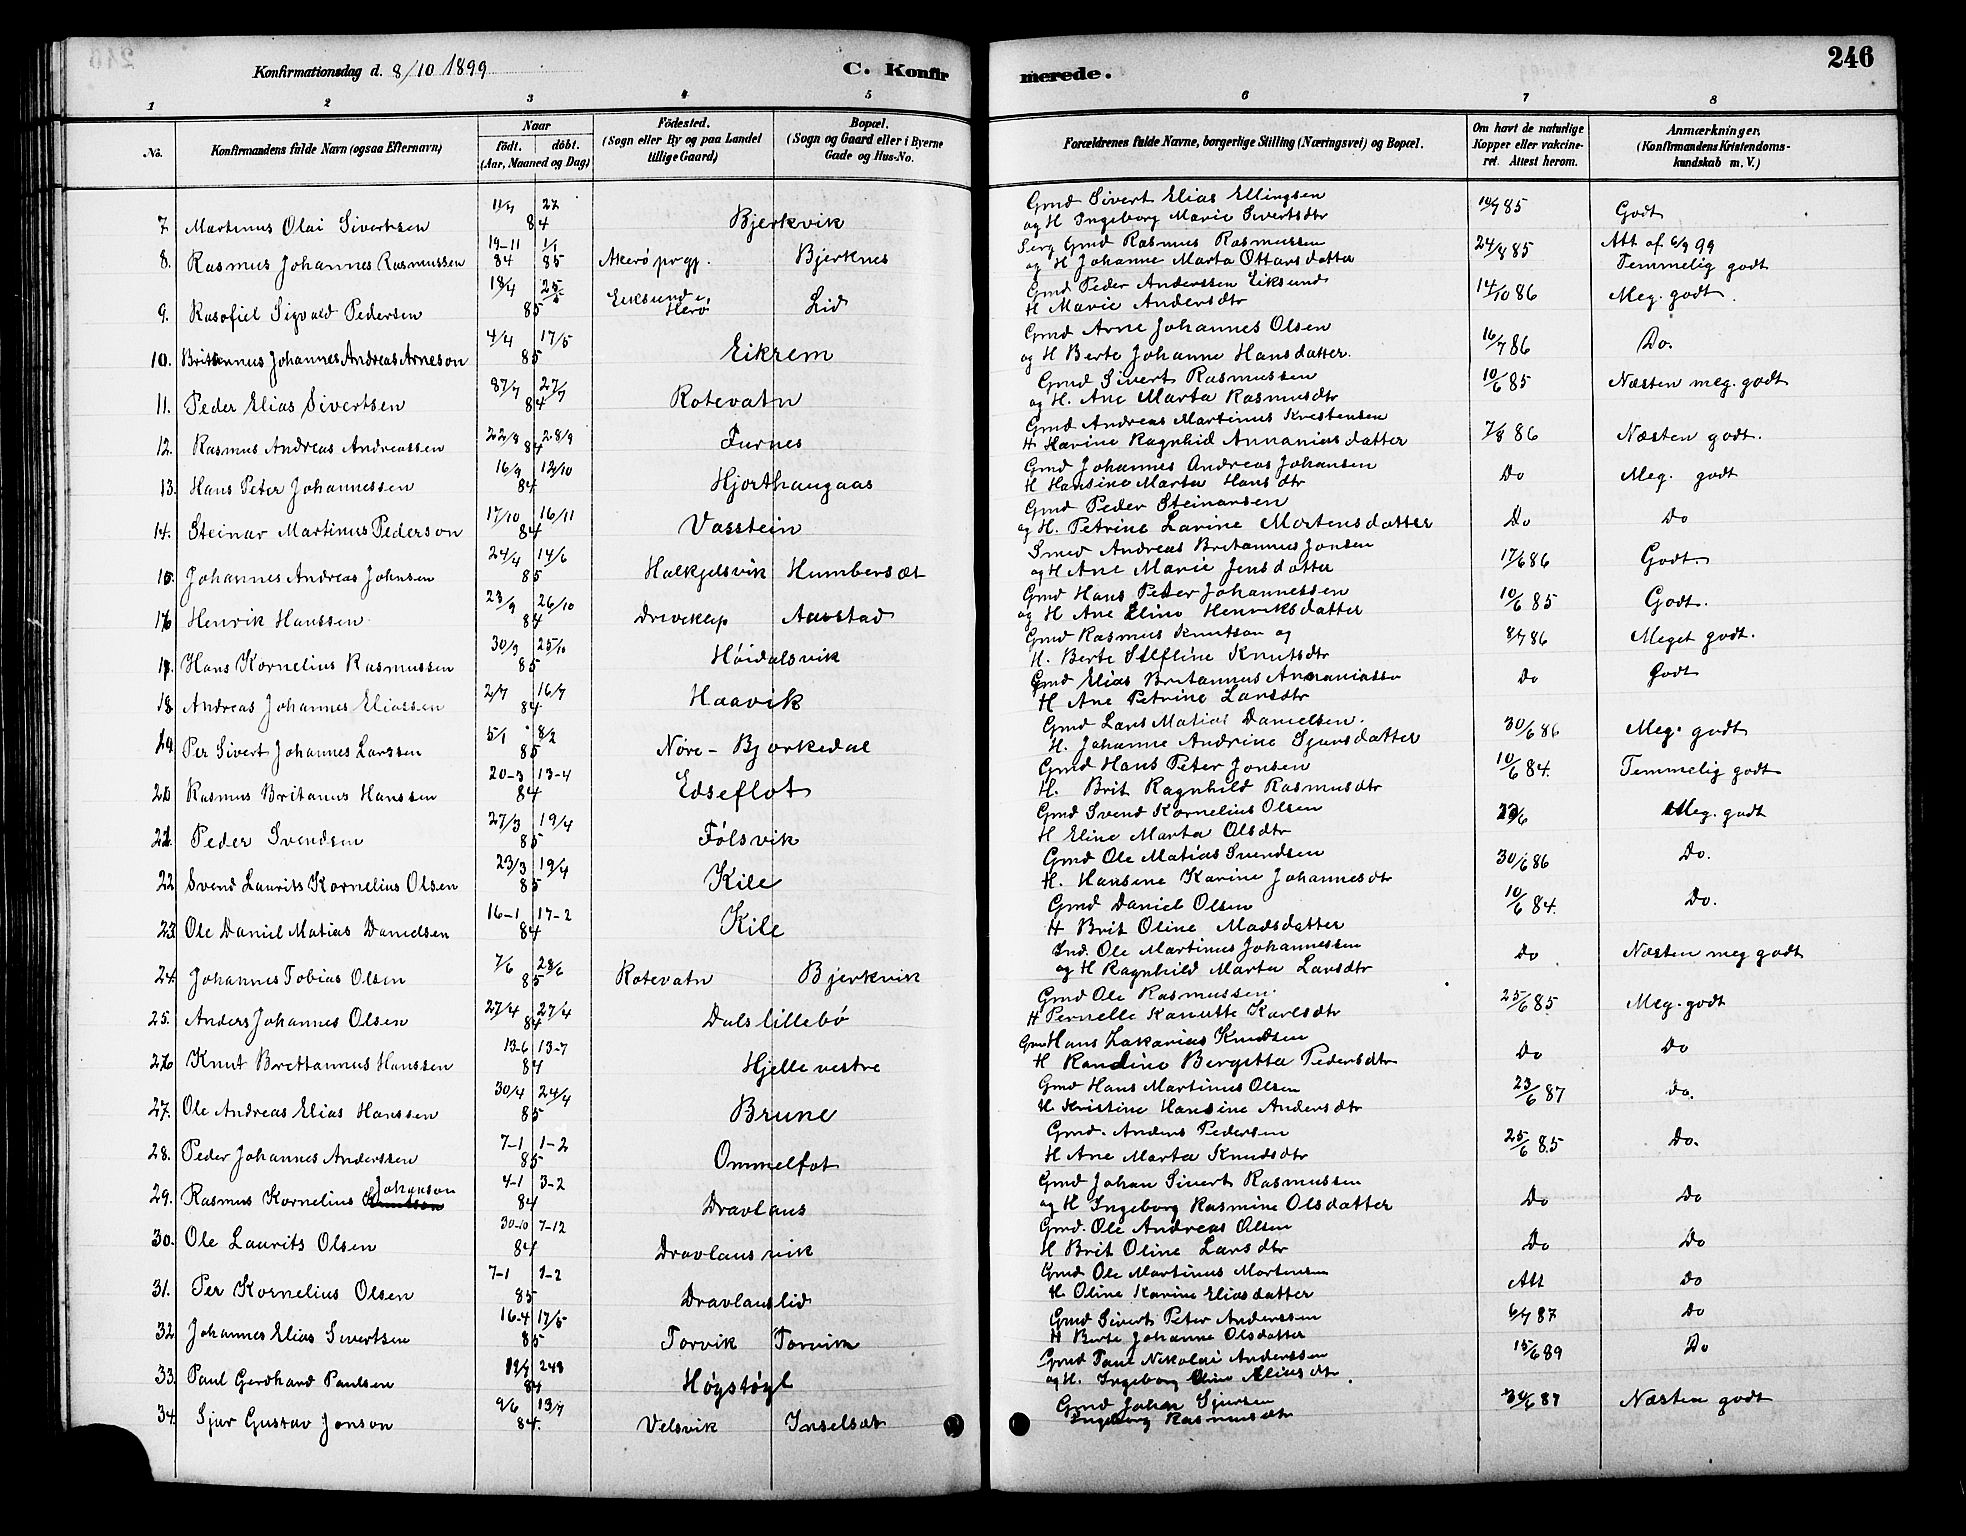 246
Konfirmationsdag d. 8/10 1899
C. Konfirmerede.
1 2 3 4 5 6 7 8
No. Konfirmandens fulde Navn (ogsaa Efternavn) Naar født. døbt. (Aar, Maaned og Dag) Fødested. (Sogn eller By og paa Landet tillige Gaard) Bopæl. (Sogn og Gaard eller i Byerne Gade og Hus-No. Forældrenes fulde Navne, borgerlige Stilling (Næringsvei) og Bopæl. Om havt de naturlige Kopper eller vakcineret. Attest herom. Anmærkninger. (Konfirmandens Kristendomskundskab m. V.)
7. Martinus Olai Sivertsen 84 Bjerkvik Gmd Sivert Elias Ellingsen
og H Ingeborg Marie Sivertsdtr Godt
8. Rasmus Johannes Rasmussen 19-11 84 1/1 85 Akerø prgj. Bjerknes Serg Gmd Rasmus Rasmussen 24/8 85 Att af 6/9 99
og H Johanne Marta Ottarsdatter Temmelig godt
9. Rasofiel Sigvald Pedersen 18/4 85 Eiksund i Herø Lid Gmd Peder Anderssen Eiksund 14/10 86 Meg. godt.
H Marie Andersdtr
10. Britannus Johannes Andreas Arneson 4/4 17/5 85 Eikrem Gmd Arne Johannes Olsen 16/7 86 Do.
og H Berte Johanne Hansdatter.
11. Peder Elias Sivertsen 27/7 84 Rotevatn Gmd Sivert Rasmussen 10/6 85 Næsten meg. godt
og H. Ane Marta Rasmusdtr
12. Rasmus Andreas Andreassen 22/8 28/9 84 Furnes Gmd Andreas Martinus Kristensen 7/8 86 Næsten godt.
H Karine Ragnhid Annaniasdatter
13. Hans Peter Johannessen 16/9 12/10 84 Hjorthaugaas Gmd Johannes Andreas Johansen Do Meg. godt
H Hansine Marta Hansdtr
14. Steinar Martinus Pederson 17/10 16/11 84 Vasstein Gmd Peder Steinarsen Do Do
og H. Petrine Larine Mortensdatter
15. Johannes Andreas Johnsen 24/4 14/6 85 Halkjelsvik Humberset Smed Andreas Britannus Jonsen 17/6 86 Godt.
og H Ane Marie Jensdatter
16 Henrik Hanssen 23/9 26/10 84 Driveklep Aarstad Gmd Hans Peter Johannessen 10/6 85 Godt.
og H Ane Eline Henriksdatter
17. Hans Kornelius Rasmussen 30/9 25/10 85 Høidalsvik Gmd Rasmus Knutson og 8/7 86 Meget godt.
H. Berte Knutsdtr
18. Andreas Johannes Eliassen 2/7 16/7 84 Haavik Gmd Elias Britannus Do Godt
H Ane Petrine Larsdtr
19. Per Sivert Johannes Larssen 5/1 8/2 85 Nøre-Bjørkedal Gmd Lars Matias Danielsen. 30/6 86 Meg. godt
H. Johanne Andrine Sjursdatter
20. Rasmus Britanus Hanssen 20-3 13-4 84 Edseflot Gmd Hans Peter Jonsen 10/6 84. Temmelig godt
H. Brit Ragnhild Rasmusdtr
21. Peder Svendsen 27/3 19/4 85 Følsvik Gmd Svend Kornelius Olsen Meg. godt
H Eline Marta Olsdtr
22 Svend Laurits Kornelius Olsen 23/3 19/4 85 Kile Gmd Ole Matias Svendsen 30/6 86 Do.
H. Hansine Karine Johannesdtr
23 Ole Daniel Matias Danielsen 16-1 17-2 84 Kile Gmd Daniel Olsen 10/6 84. Do.
H Brit Oline Madsdatter
24. Johannes Tobias Olsen 7/6 28/6 85 Rotevatn Bjerkvik Ind. Ole Martinus Johannessen Do Næsten meg godt
og H Ragnhild Marta Larsdtr
25. Anders Johannes Olsen 27/4 27/4 84 Dalslillebø Gmd Ole Rasmussen. 25/6 85 Meg. godt
H Pernelle Kanutte Karlsdtr
26 Knut Brettannus Hanssen 13-6 13-7 84 Hjelle vestre Gmd Hans Zakarias Knudsen Do Do
H Randine Bergitta Pedersdtr
27. Ole Andreas Elias Hanssen 30/4 24/4 85 Brune Gmd Hans Martinus Olsen 23/6 87 do.
H Kristine Hansine Andersdtr
28. Peder Johannes Anderssen 7-1 1-2 85 Ommelfot Gmd. Anders Pedersen 25/6 85 Do.
H Ane Marta Knudsdtr
29. Rasmus Kornelius Johanson 4-1 3-2 84 Dravlaus Gmd Johan Sivert Rasmussen Do Do
og H Ingeborg Rasmine Olsdatter
30. Ole Laurits Olsen 30-10 7-12 84 Dravlausvik Gmd. Ole Andreas Olsen Do Do
H Brit Oline Larsdtr
31. Per Kornelius Olsen 7-1 1-2 85 Dravlauslid Gmd Ole Martinus Mortensen Att Do
H Oline Karine Eliasdatter
32 Johannes Elias Sivertsen 16-4 17/5 85 Torvik Torvik Gmd Sivert Peter Anderssen 6/7 87 Do
H Berte Johanne Olsdatter
33. Paul Gerdhard Paulsen 84 Høgstøyl Gmd Paul Nikolai Anderssen 15/6 89 Do
og H. Ingeborg Eliasdtr.
34. Sjur Gustav Jonson 9/6 13/7 84. Velsvik Inselset Gmd Johan Sjursen Næsten godt
Ingeborg Rasmusdtr